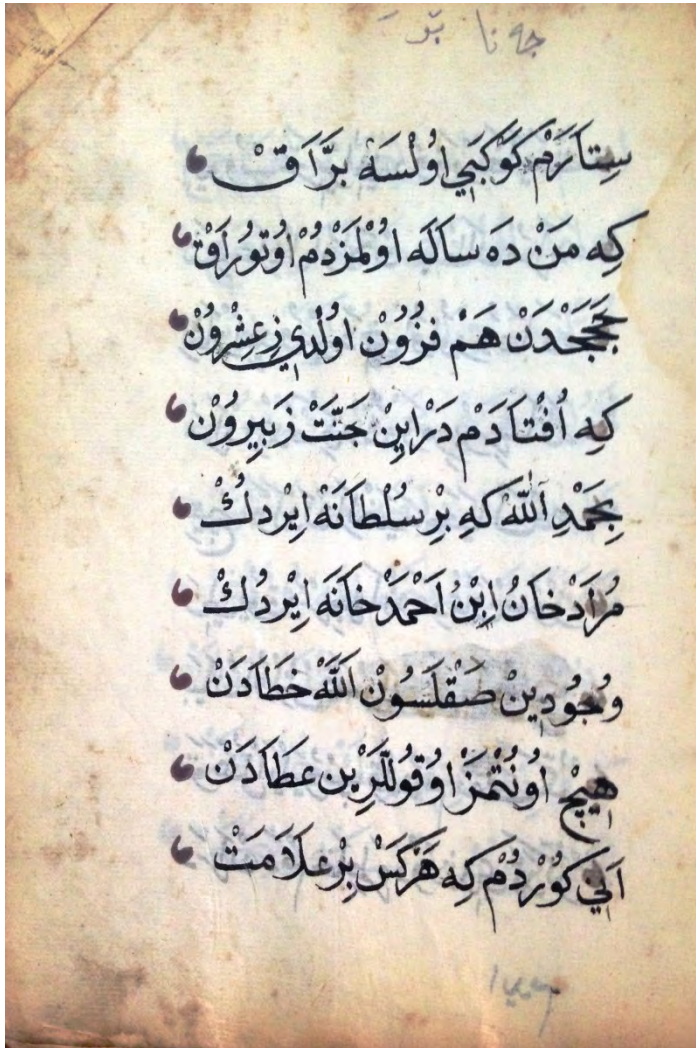 جه نا بر
سِتَارَمْ كَوْكَبَي اوُلْسَهْ برَّاَقْ
كِه مَنْ دَه سَالَه اوُلْمَزْدمُ اوُتوُرَاقْ
حَجَجْدَنْ هَمْ فزُوُنْ اوُلْدِي زِعِشْروُنْ
كِه اُفْتَادَمْ دَرْاِينْ جَنَّتْ زَبِيروُنْ
بِحَمْدِ اَللّٰهْ كَهِ بِرْ سُلْطَانَهْ ايِرْدكُ
مُرَادْ خَانْ اِبْنُ اَحْمَدْ خَانَه ايِرْدُكْ
وجُودِينْ صَقْلَسُونْ اَللَّهْ خَطَادَنْ
هِيچْ اوُنُتْمَزْ اوُ قوُللَّرِينْ عَطَادَنْ
اَنِي كوُرْدُمْ كِه هَرْكَسْ بِرْ عَلَامَتْ